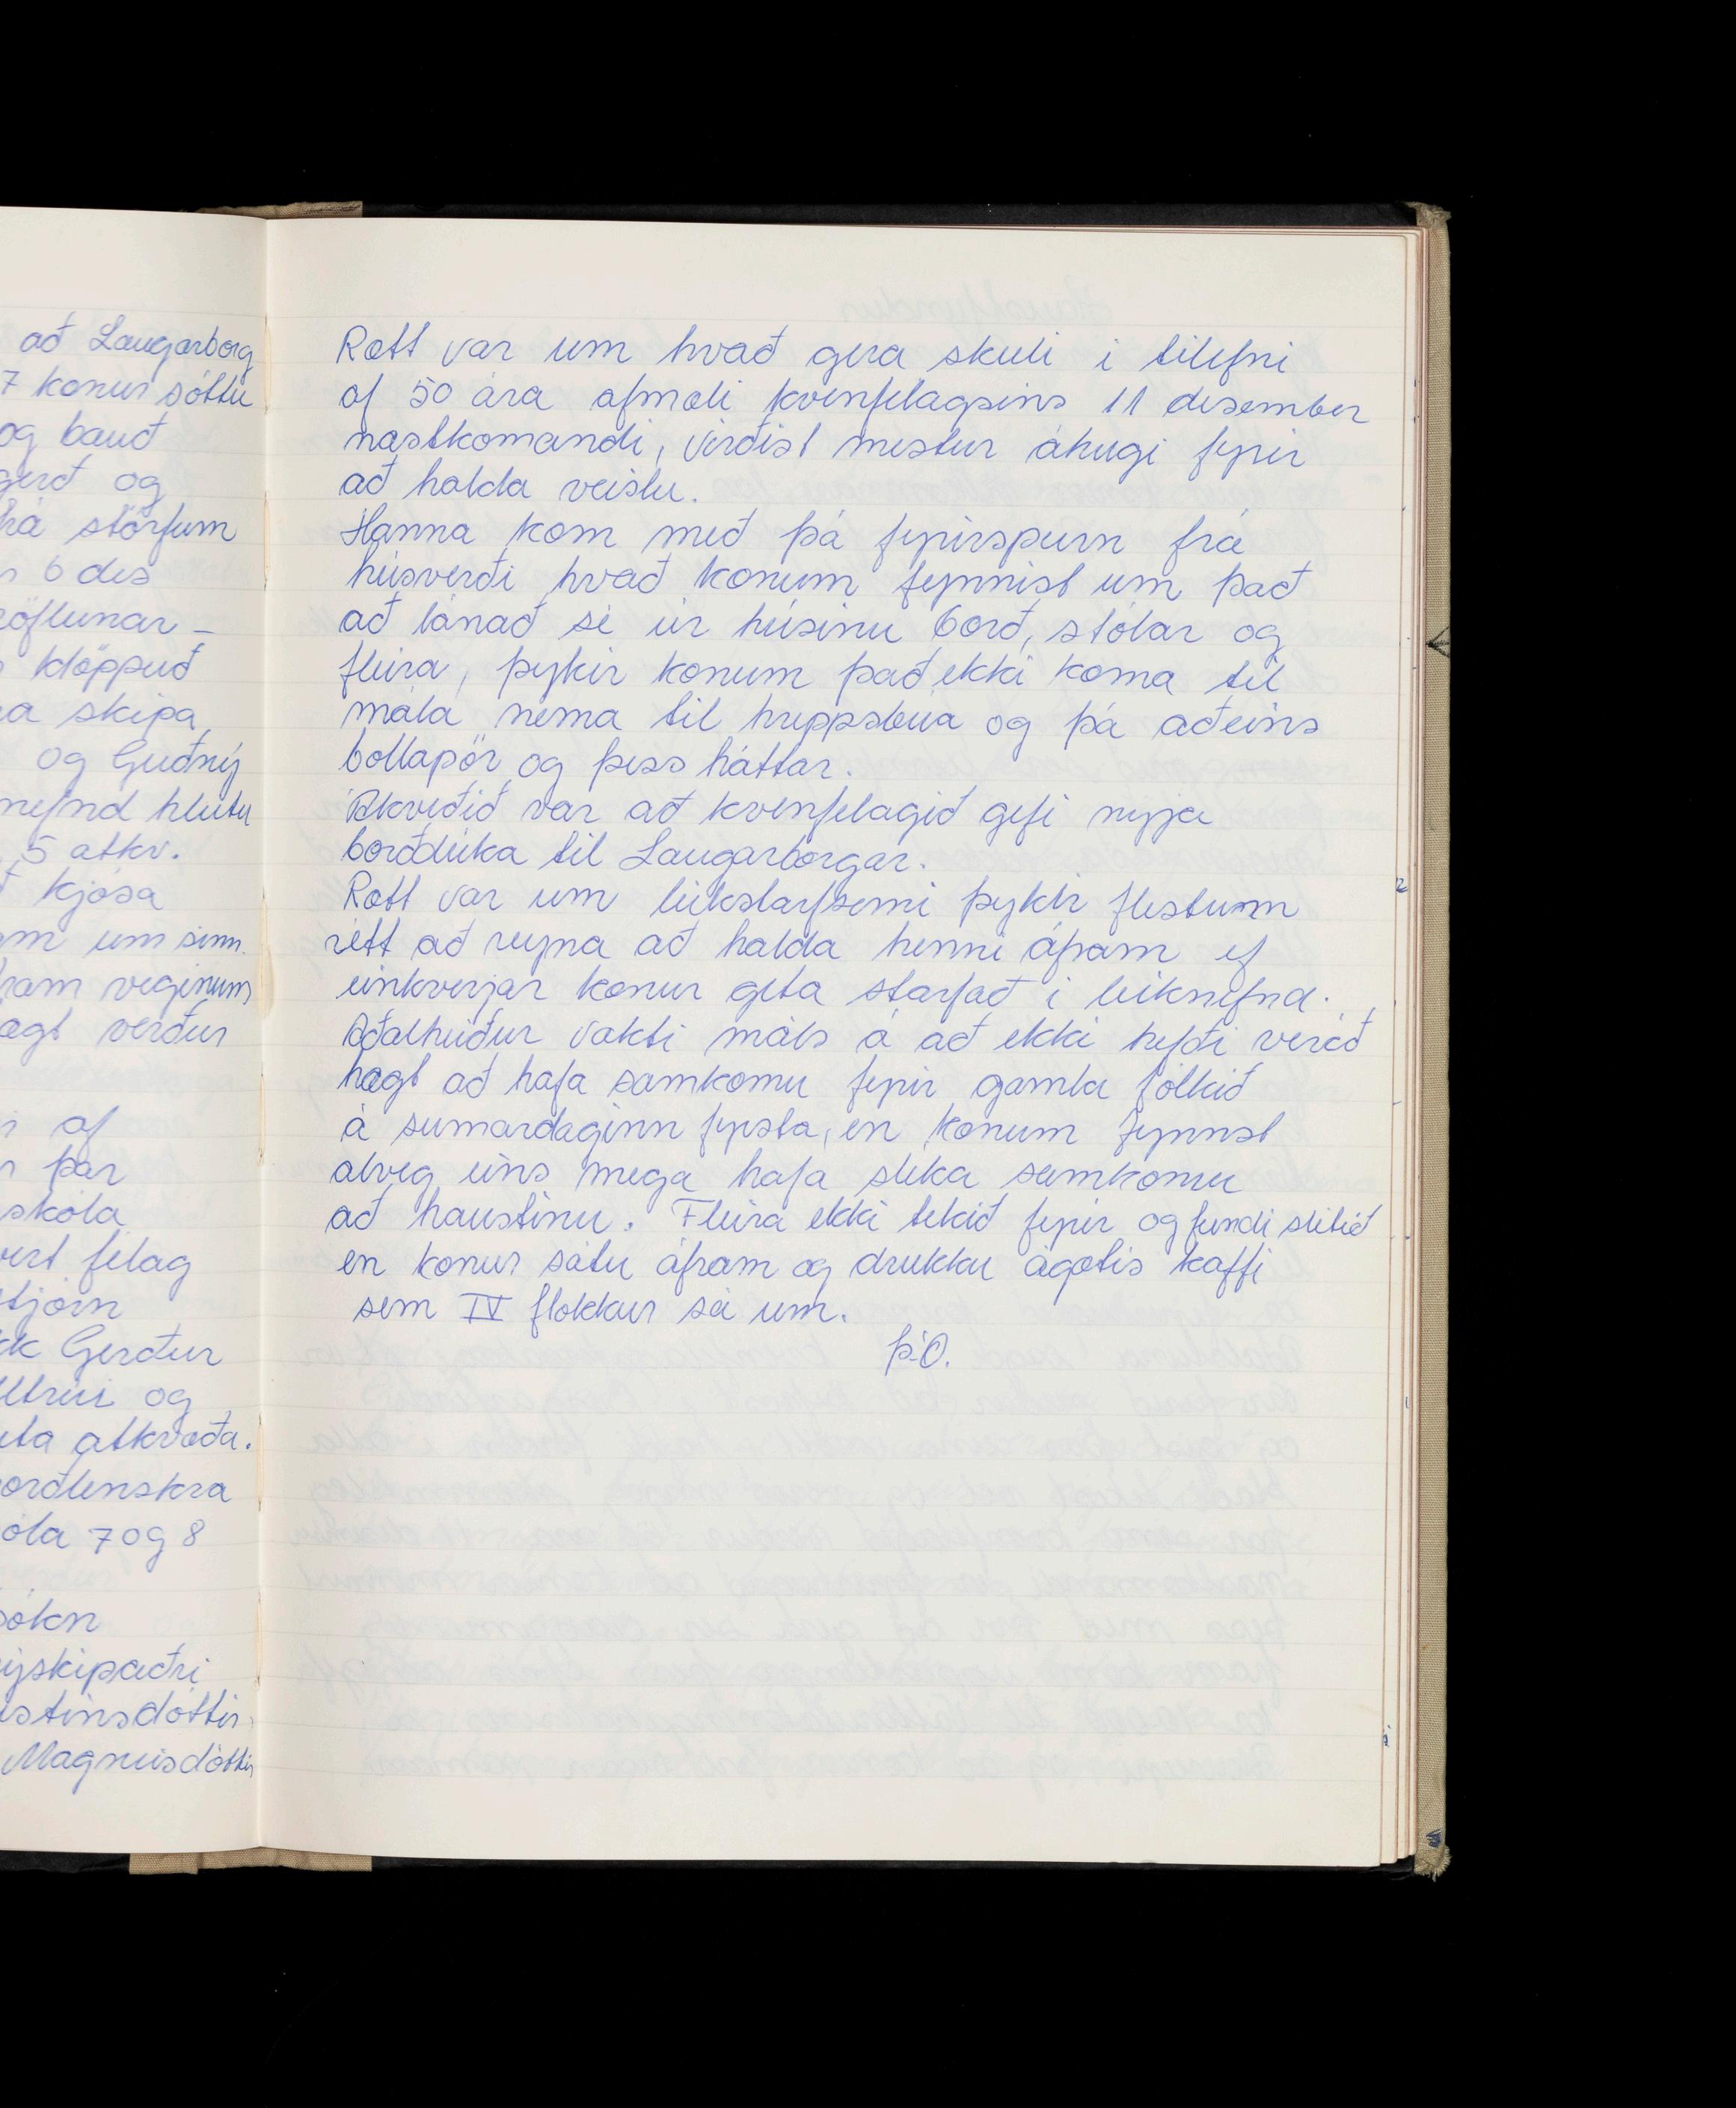 að Laugarborg
7 konur sóttu
og bauð
gerð og
störfum
6 des
klöppuð
skipa
og Guðný
nefnd hlutu
5 atkv.
kjósa
um sinn.
veginum
verður
af
þar
skóla
félag
Gerður
og
atkvæða.
7 og 8
Magnúsdóttir
Rætt var um hvað gera skuli í tilefni
af 50 ára afmæli kvenfélagsins 11 desember
næstkomandi, virðist mestur áhugi fyrir
að halda veislu.
Hanna kom með þá fyrirspurn frá
húsverði hvað konum fynnist um það
að lánað sé úr húsinu borð, stólar og
fleira, þykir konum það ekki koma til
mála nema til hreppsbúa og þá aðeins
bollapör og þess háttar.
Ákveðið var að kvenfélagið gefi nýja
borðdúka til Laugarborgar.
Rætt var um leikstarfsemi þykir flestum
rétt að reyna að halda henni áfram ef
einkverjar konur geta starfað í leiknefnd.
Aðalheiður vakti máls á að ekki hefði verið
hægt að hafa samkomu fyrir gamla fólkið
á sumardaginn fyrsta, en konum fynnst
alveg eins mega hafa slíka samkomu
að haustinu. Fleira ekki tekið fyrir og fundi slitið
en konur sátu áfram og drukku ágætis kaffi
sem IV flokkur sá um.
Þ.Ó.